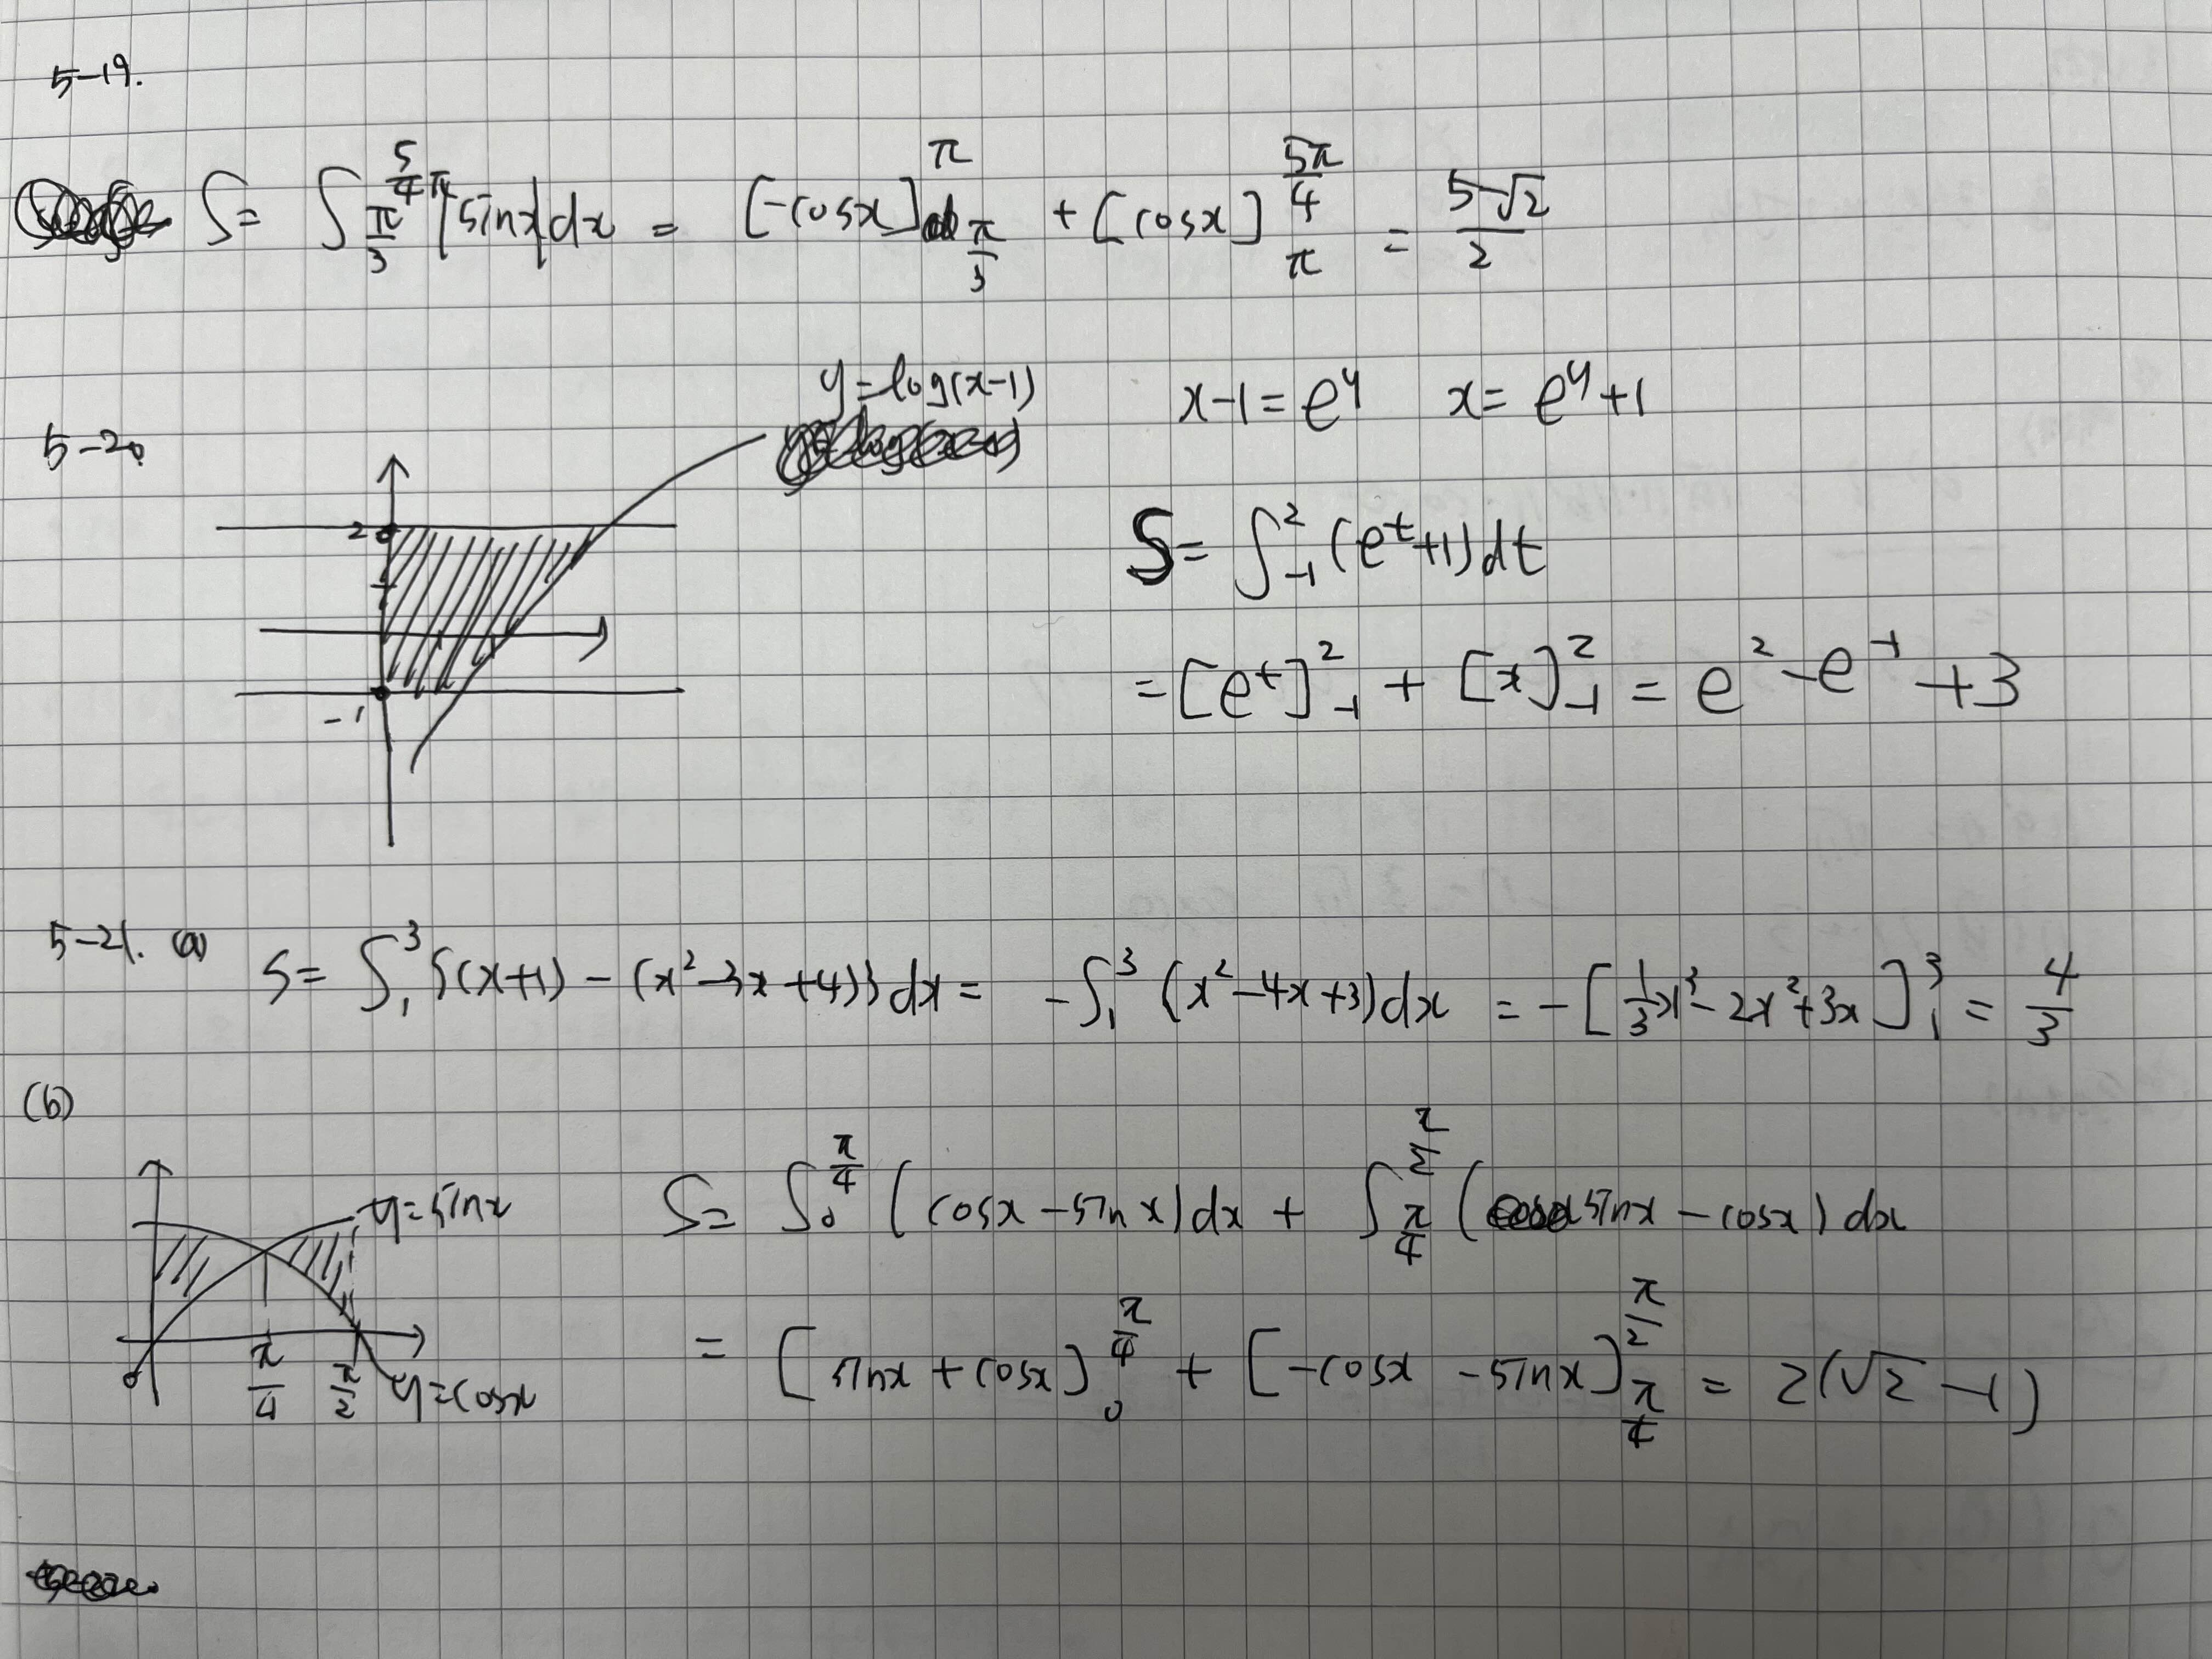 5-19.
S = ∫_{π/3}^{5/4 π} |sinx| dx = [-cosx]_{π/3}^{π} + [cosx]_{π}^{5π/4} = (5-√2)/2
5-20
y=log(x-1)
x-1 = e^y  x = e^y+1
2
S = ∫_{-1}^{2} (e^t+1) dt
-1
= [e^t]_{-1}^{2} + [x]_{-1}^{2} = e^2 - e^{-1} + 3
5-21. (a) S = ∫_1^3 {(x+1) - (x^2-3x+4)} dx = -∫_1^3 (x^2-4x+3) dx = -[1/3 x^3 - 2x^2 + 3x]_1^3 = 4/3
(b)
y=sinx
S = ∫_0^{π/4} (cosx - sinx) dx + ∫_{π/4}^{π/2} (sinx - cosx) dx
0 π/4 π/2 y=cosx
= [sinx + cosx]_0^{π/4} + [-cosx - sinx]_{π/4}^{π/2} = 2(√2 -1)